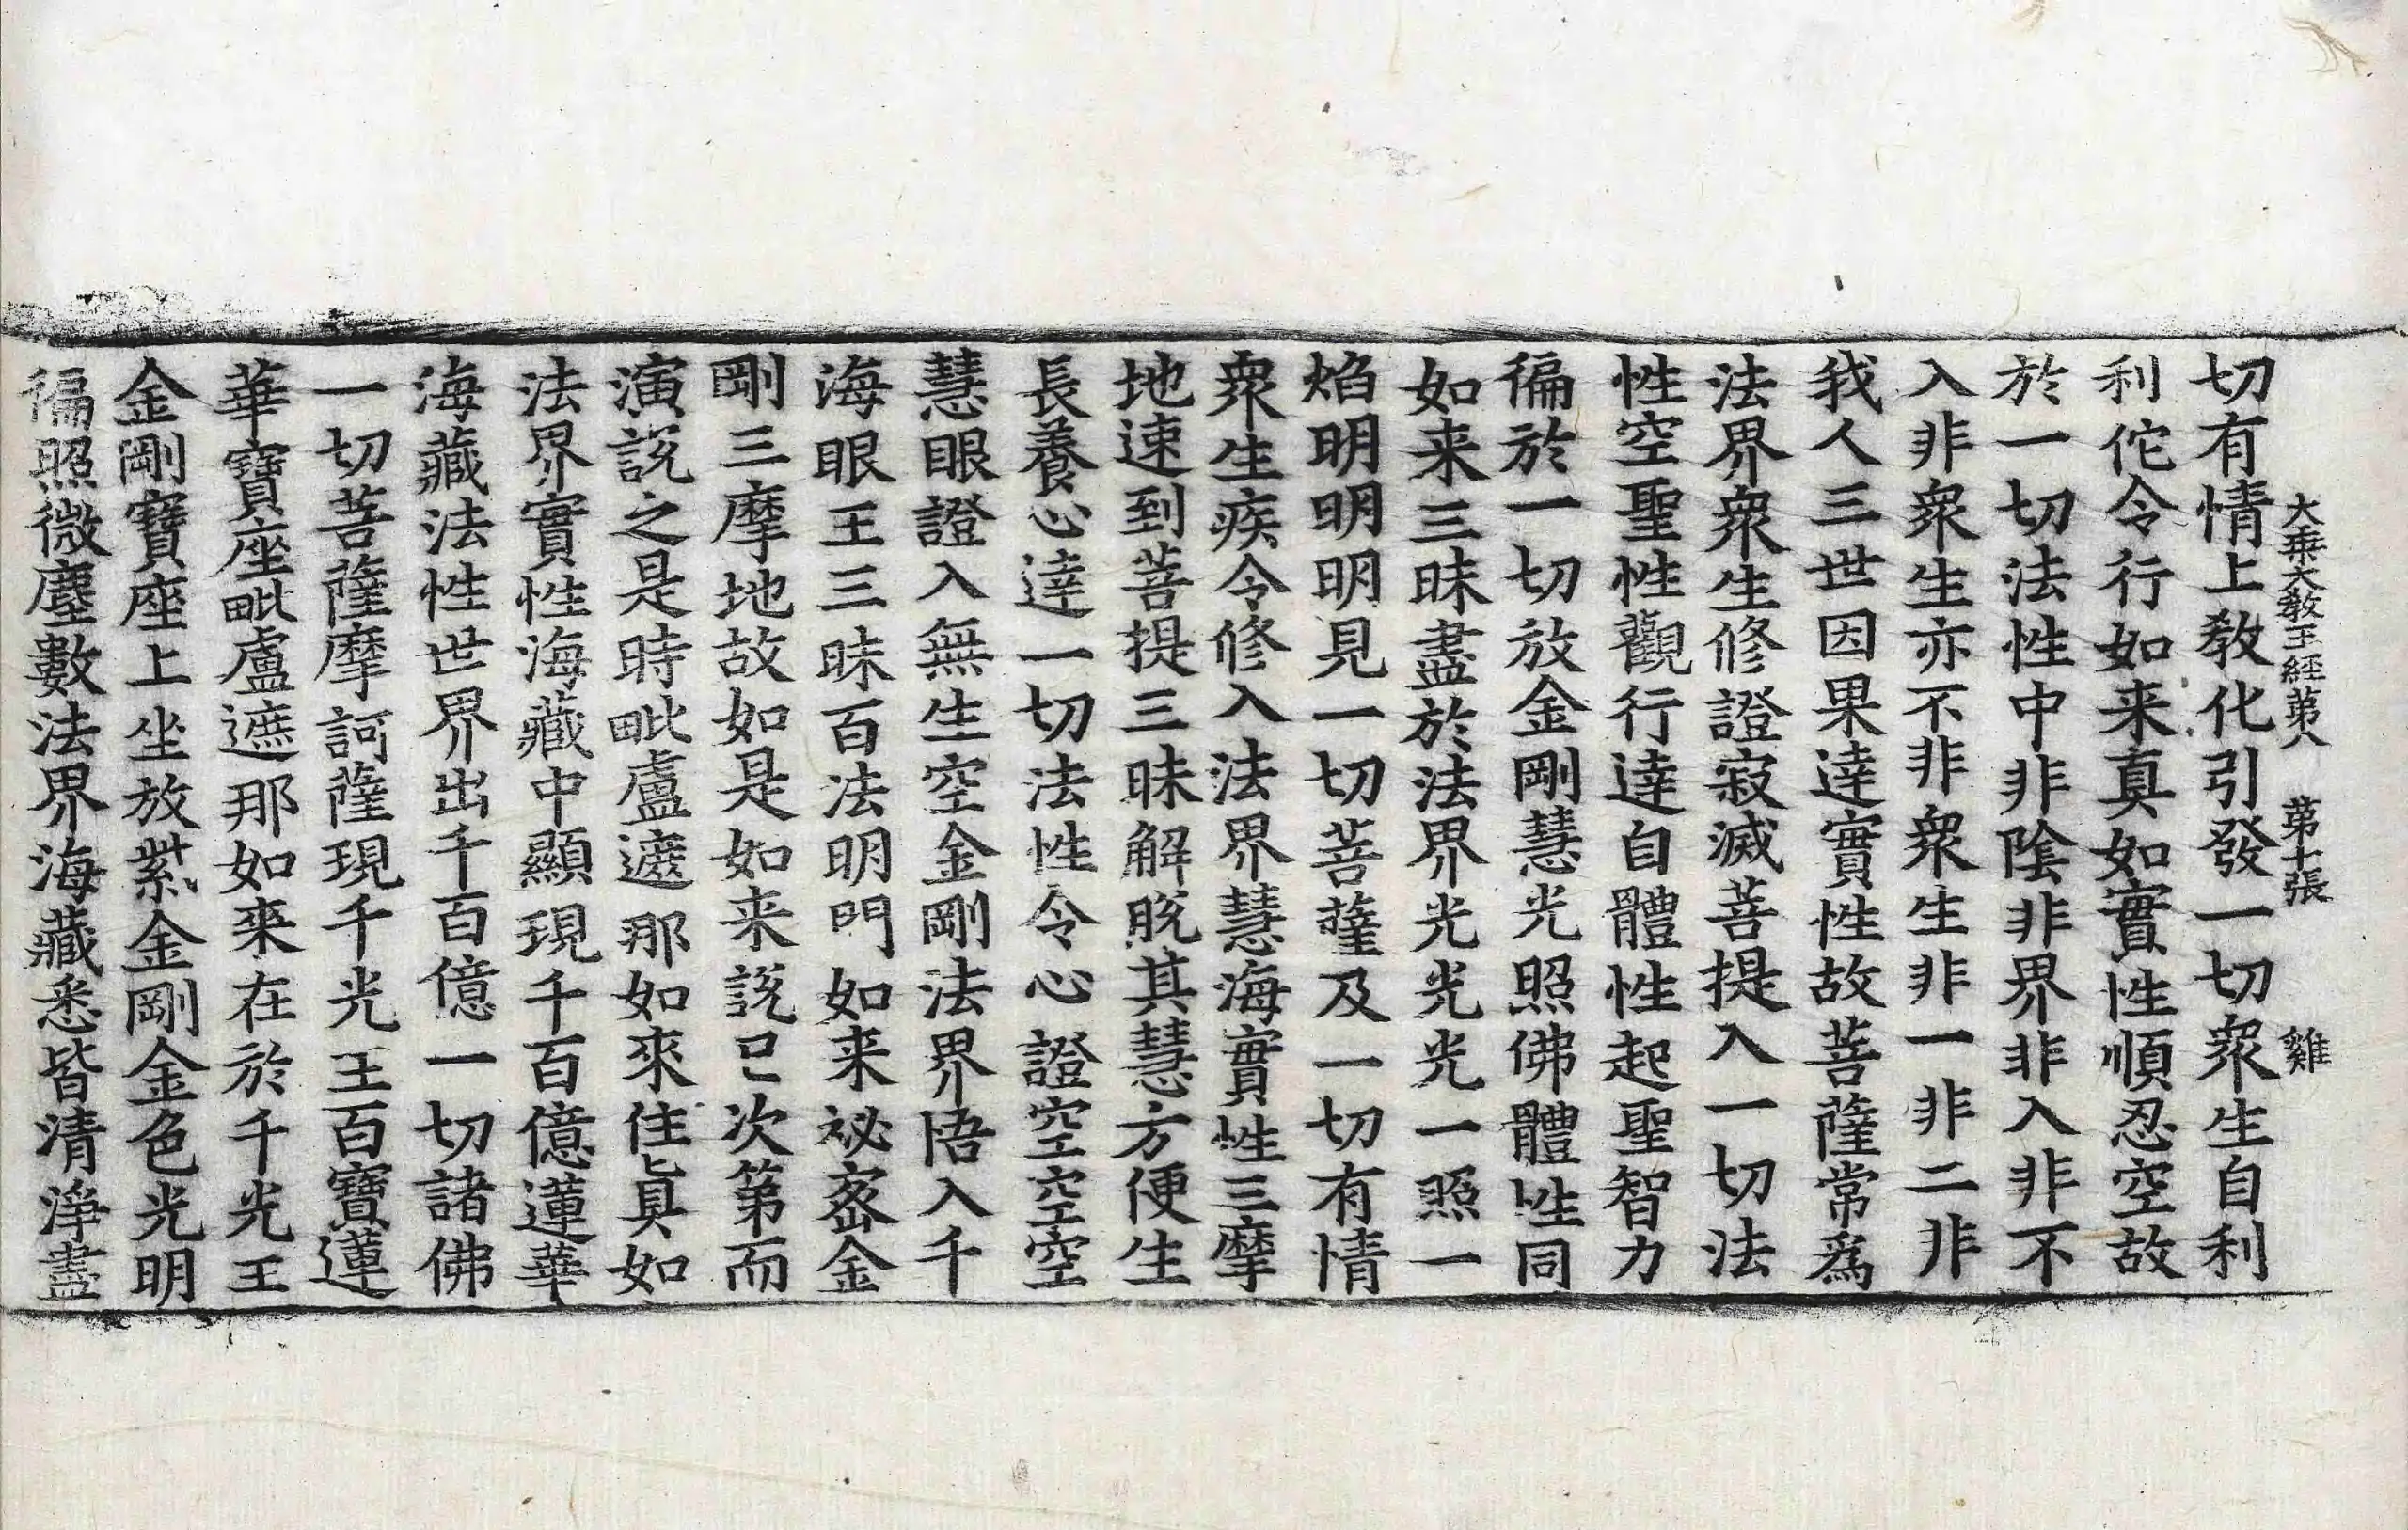 大乘大敎王經第八　第十張　雞
切有情上敎化引發一切衆生自利
利佗令行如来真如實性順忍空故
於一切法性中非陰非界非入非不
入非衆生亦不非衆生非一非二非
我人三世因果達實性故菩薩常爲
法界衆生修證寂滅菩提入一切法
性空聖性觀行達自體性起聖智力
徧於一切放金剛慧光照佛體性同
如来三昧盡於法界光光光一照一
焰明明明見一切菩薩及一切有情
衆生疾令修入法界慧海實性三摩
地速到菩提三昧解脫其慧方便生
長養心達一切法性令心證空空空
慧眼證入無生空金剛法界悟入千
海眼王三昧百法明門如来祕密金
剛三摩地故如是如来說已次第而
演說之是時毗盧遮那如來住真如
法界實性海藏中顯現千百億蓮華
海藏法性世界出千百億一切諸佛
一切菩薩摩訶薩現千光王百寶蓮
華寶座毗盧遮那如來在於千光王
金剛寶座上坐放紫金剛金色光明
徧照微塵數法界海藏悉皆清淨盡